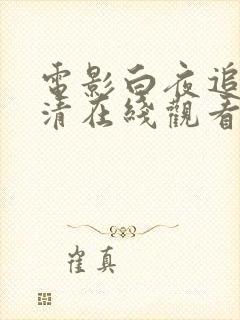 電影白夜追
清在綫觀看
崔真